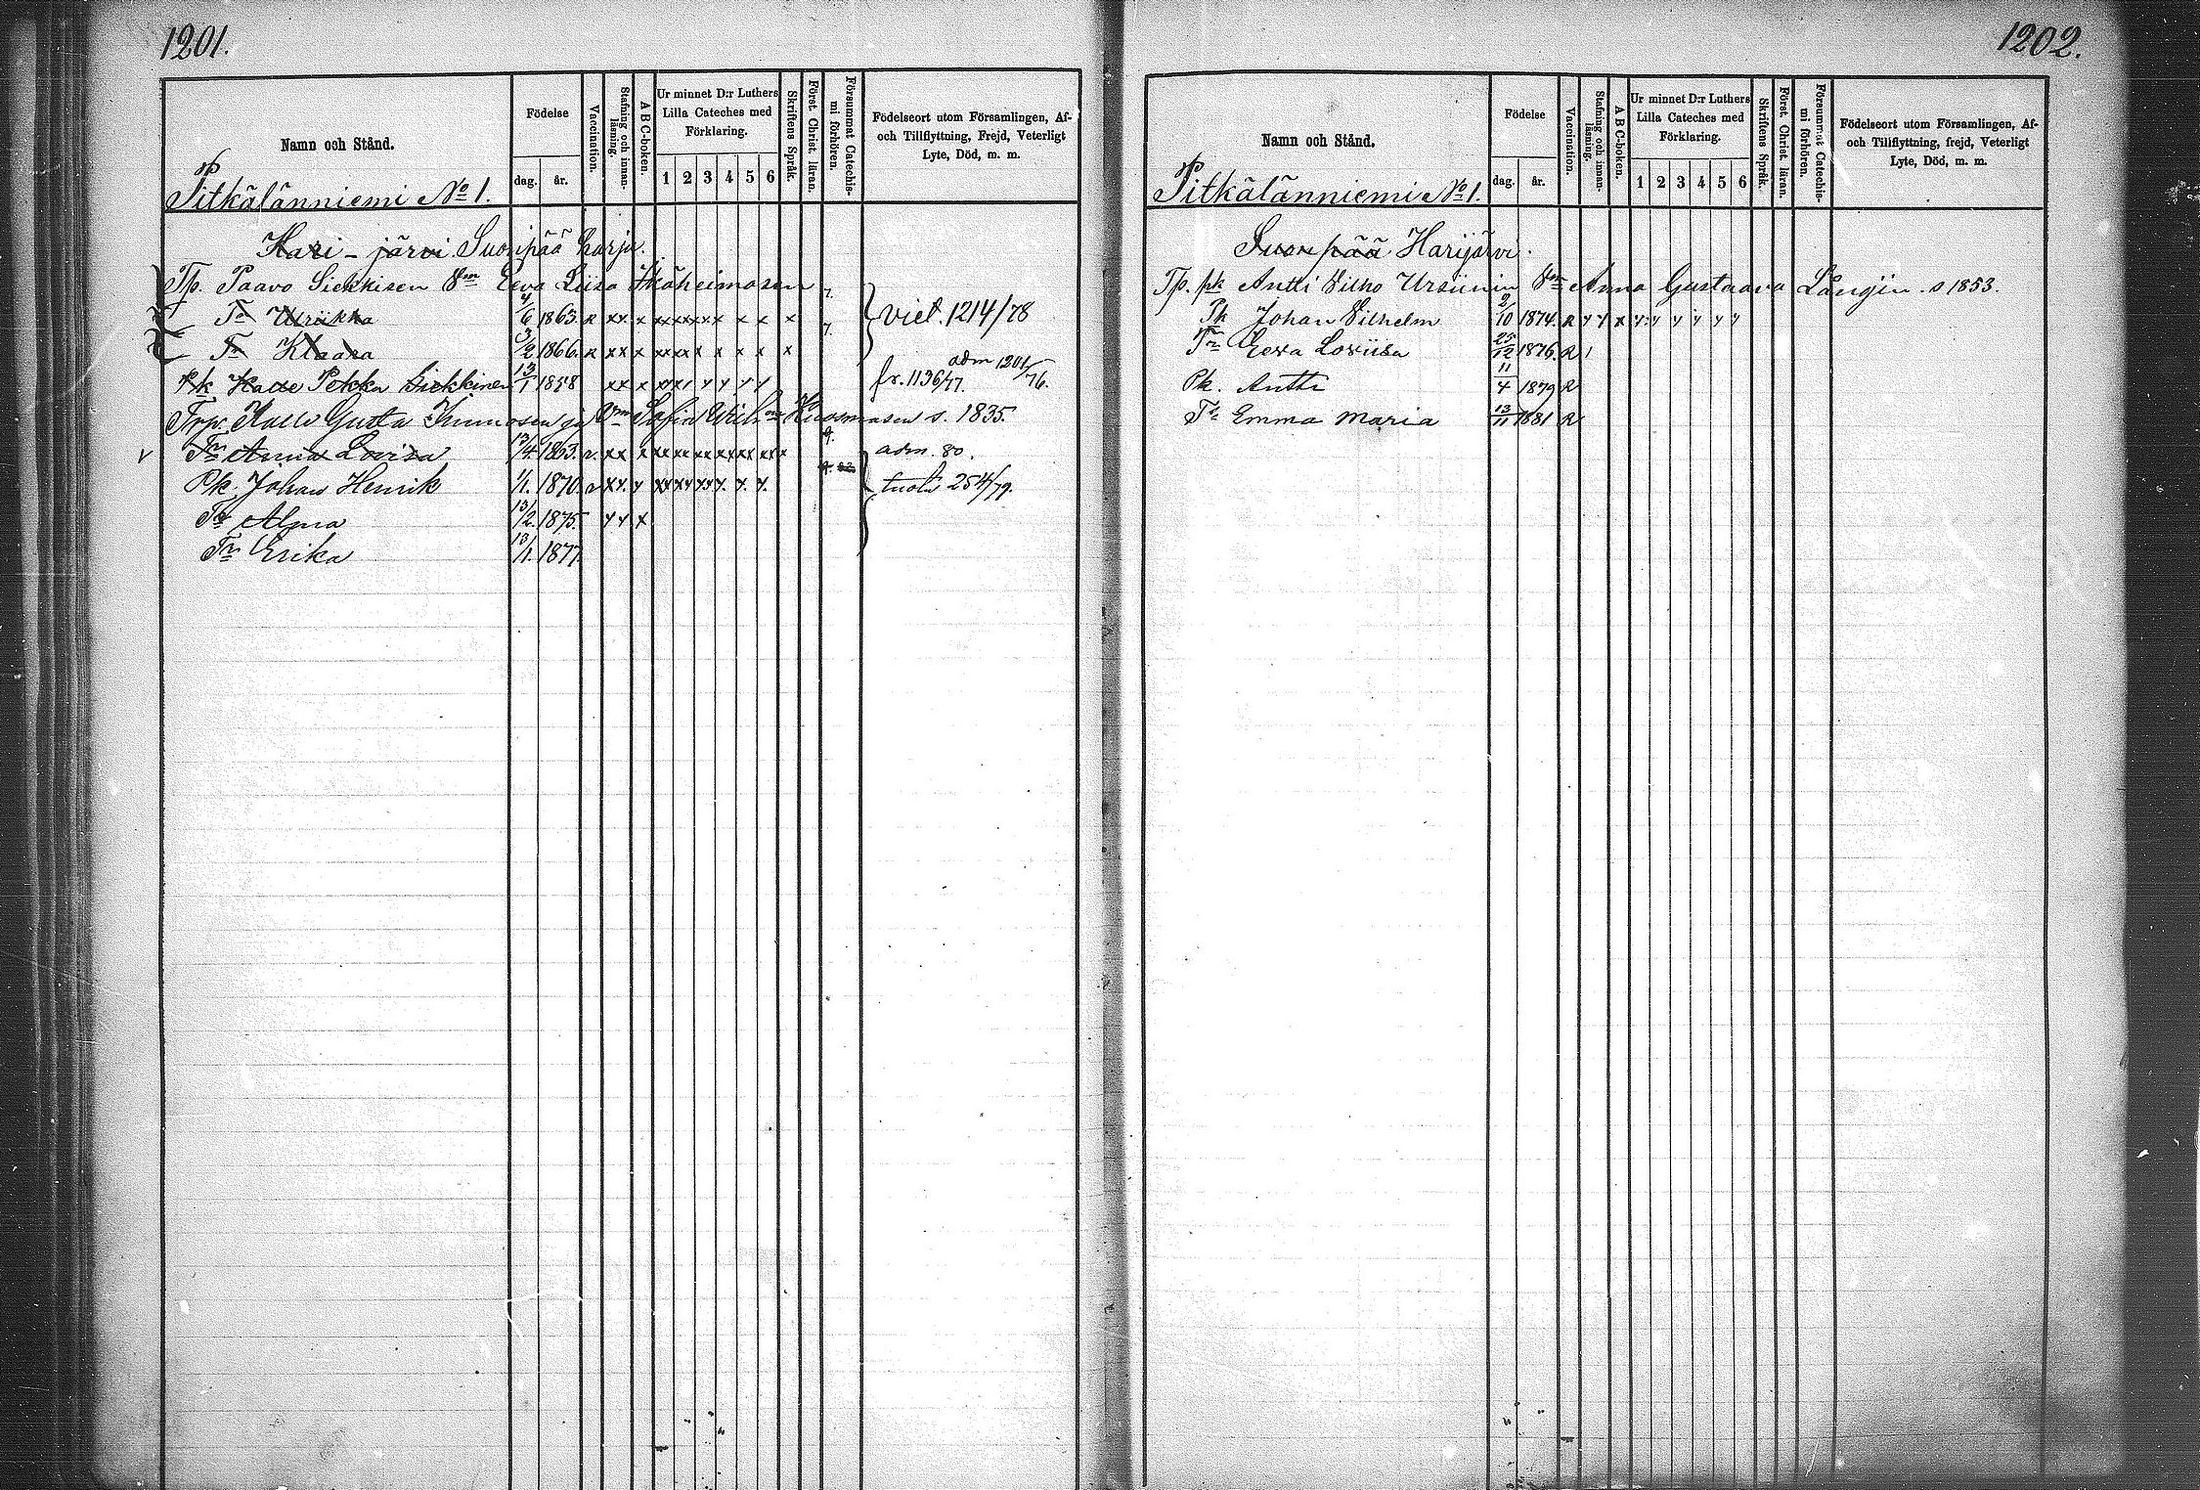 1201.
Namn och Stånd.
Födelse
dag.
år.
Vaccination.
Stafning och innan-läsning.
A B C-boken.
Ur minnet D:r Luthers
Lilla Cateches med
Förklaring.
1 2 3 4 5 6
Skriftens Språk.
Först. Christ. läran.
Försummat Catechis-
mi förhören.
Födelseort utom Församlingen, Af-
och Tillflyttning, Frejd, Veterligt
Lyte, Död, m. m.
Pitkälänniemi No 1.
Hari-järvi Suonpää harju.
Tp. Paavo Siekkisen Vm Eeva Liisa
Tr Ulriikka 4/6 1863. R xx x xxxxxxx x x x 7. viet. 1214/78
Tr Klaara 3/2 1866. R xx x xxxx x x x x x 7.
Pk Kalle Pekka Siekkinen 13/1 1858 xx x fr. 1136/77. adm 1201/76.
Trp. Kalle Gusta ja Vm Sofia s. 1835.
v Tr Anna Lovisa 13/4 1863. xx x adm. 80.
Pk. Johan Henrik 1/1. 1870. tuoli 254/79.
Tr Alma 13/2. 1875. y y x
Tr Erika 13/1. 1877.
1202.
Namn och Stånd.
Födelse
dag.
år.
Vaccination.
Stafning och innan-läsning.
A B C-boken.
Ur minnet D:r Luthers
Lilla Cateches med
Förklaring.
1 2 3 4 5 6
Skriftens Språk.
Först. Christ. läran.
Försummat Catechis-
mi förhören.
Födelseort utom Församlingen, Af-
och Tillflyttning, frejd, Veterligt
Lyte, Död, m. m.
Pitkälänniemi No 1.
Suonpää Harijärvi.
Tp. pk Antti Vilho Ursiinin Vm Anna Gustaava Långin. s 1853.
Pk Johan Vilhelm 2/10 1874. R y y x y y y y y y
Tr Eeva Loviisa 25/12 1876. R 1
Pk. Antti 11/4 1879 R
Tr Emma Maria 13/11 1881 R